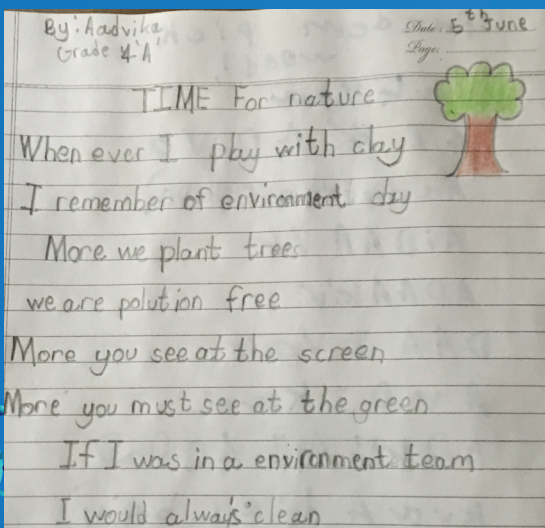 By: Aadvika
Grade 4'A'
Date: 5th June
Page:
TIME For nature
When ever I play with clay
I remember of environment day
More we plant trees
we are polution free
More you see at the screen
More you must see at the green
If I was in a environment team
I would always clean